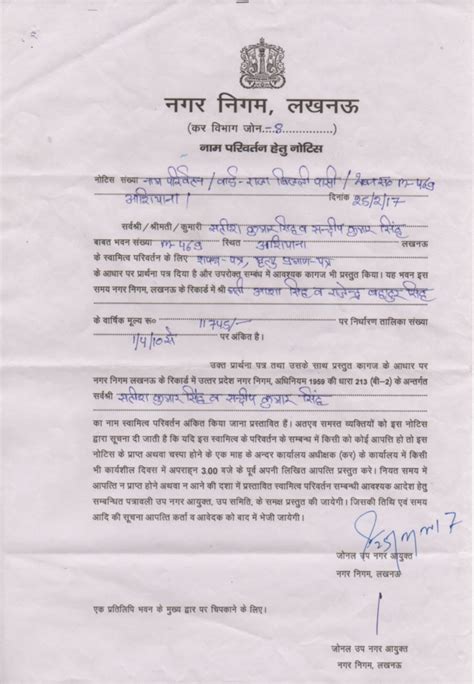 नगर निगम, लखनऊ
(कर विभाग जोन.-8................)
नाम परिवर्तन हेतु नोटिस
नोटिस संख्या नाम परिवर्तन / वार्ड- राजा बिजली पासी / भवन सं० m-469
आशियाना। दिनांक 25/2/17
सर्वश्री / श्रीमती / कुमारी सतीश कुमार सिंह व सन्दीप कुमार सिंह
बाबत भवन संख्या m-469 स्थित आशियाना लखनऊ
के स्वामित्व परिवर्तन के लिए शपथ-पत्र, मृत्यु प्रमाण-पत्र
के आधार पर प्रार्थना पत्र दिया है और उपरोक्त सम्बंध में आवश्यक कागज भी प्रस्तुत किया है। यह भवन इस
समय नगर निगम, लखनऊ के रिकार्ड में श्री आशा सिंह व राजेन्द्र बहादुर सिंह
के वार्षिक मूल्य रू० 11745/- पर निर्धारण तालिका संख्या
1/4/10 से पर अंकित है।
उक्त प्रार्थना पत्र तथा उसके साथ प्रस्तुत कागज के आधार पर
नगर निगम लखनऊ के रिकार्ड में उत्तर प्रदेश नगर निगम, अधिनियम 1959 की धारा 213 (बी-2) के अन्तर्गत
सर्वश्री सतीश कुमार सिंह व सन्दीप कुमार सिंह
का नाम स्वामित्व परिवर्तन अंकित किया जाना प्रस्तावित हैं। अतएव समस्त व्यक्तियों को इस नोटिस
द्वारा सूचना दी जाती है कि यदि इस स्वामित्व के परिवर्तन के सम्बन्ध में किसी को कोई आपत्ति हो तो इस
नोटिस के प्राप्त अथवा चस्पा होने के एक माह के अन्दर कार्यालय अधीक्षक (कर) के कार्यालय में किसी
भी कार्यशील दिवस में अपराह्न 3.00 बजे के पूर्व अपनी लिखित आपत्ति प्रस्तुत करे। नियत समय में
आपत्ति न प्राप्त होने अथवा न आने की दशा में प्रस्तावित स्वामित्व परिवर्तन सम्बन्धी आवश्यक आदेश हेतु
सम्बन्धित पत्रावली उप नगर आयुक्त, उप समिति, के समक्ष प्रस्तुत की जायेगी। जिसकी तिथि एवं समय
आदि की सूचना आपत्ति कर्ता व आवेदक को बाद में भेजी जायेगी।
जोनल उप नगर आयुक्त
नगर निगम, लखनऊ
एक प्रतिलिपि भवन के मुख्य द्वार पर चिपकाने के लिए।
जोनल उप नगर आयुक्त
नगर निगम, लखनऊ